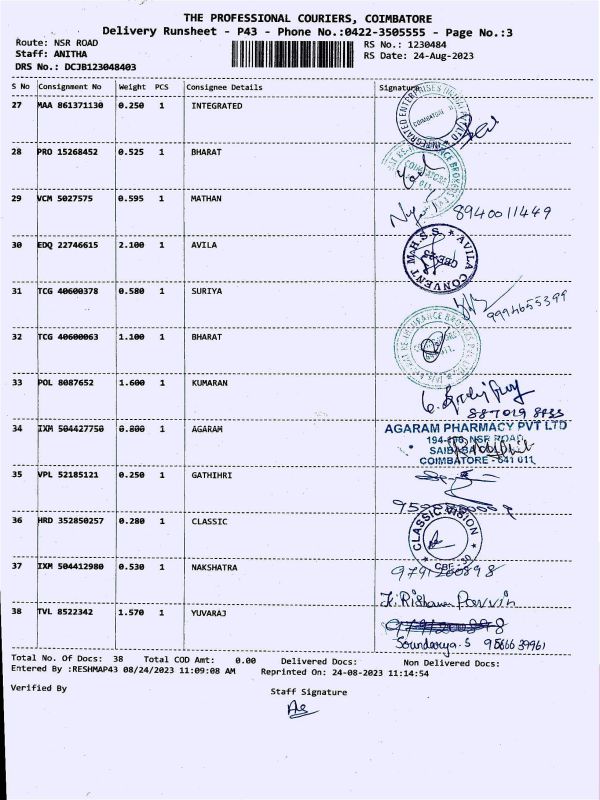 THE PROFESSIONAL COURIERS, COIMBATORE
Delivery Runsheet - P43 - Phone No.:0422-3505555 - Page No.:3
Route: NSR ROAD RS No.: 1230484
Staff: ANITHA RS Date: 24-Aug-2023
DRS No.: DCJB123048403
S No Consignment No Weight PCS Consignee Details Signature
27 MAA 861371130 0.250 1 INTEGRATED
COIMBATORE
28 PRO 15268452 0.525 1 BHARAT
29 VCM 5027575 0.595 1 MATHAN
8940011449
30 EDQ 22746615 2.100 1 AVILA
AVILA CONVENT M.H.S.S.
31 TCG 40600378 0.580 1 SURIYA
9994655399
32 TCG 40600063 1.100 1 BHARAT
33 POL 8087652 1.600 1 KUMARAN
34 IXM 504427750 0.800 1 AGARAM
AGARAM PHARMACY PVT LTD
NSR ROAD
COIMBATORE - 641 011
35 VPL 52185121 0.250 1 GATHIHRI
36 HRD 352850257 0.280 1 CLASSIC
CLASSIC VISION
37 IXM 504412980 0.530 1 NAKSHATRA
9791200898
38 TVL 8522342 1.570 1 YUVARAJ
Soundarya.S 9566639961
Total No. Of Docs: 38 Total COD Amt: 0.00 Delivered Docs: Non Delivered Docs:
Entered By :RESHMAP43 08/24/2023 11:09:08 AM Reprinted On: 24-08-2023 11:14:54
Verified By Staff Signature